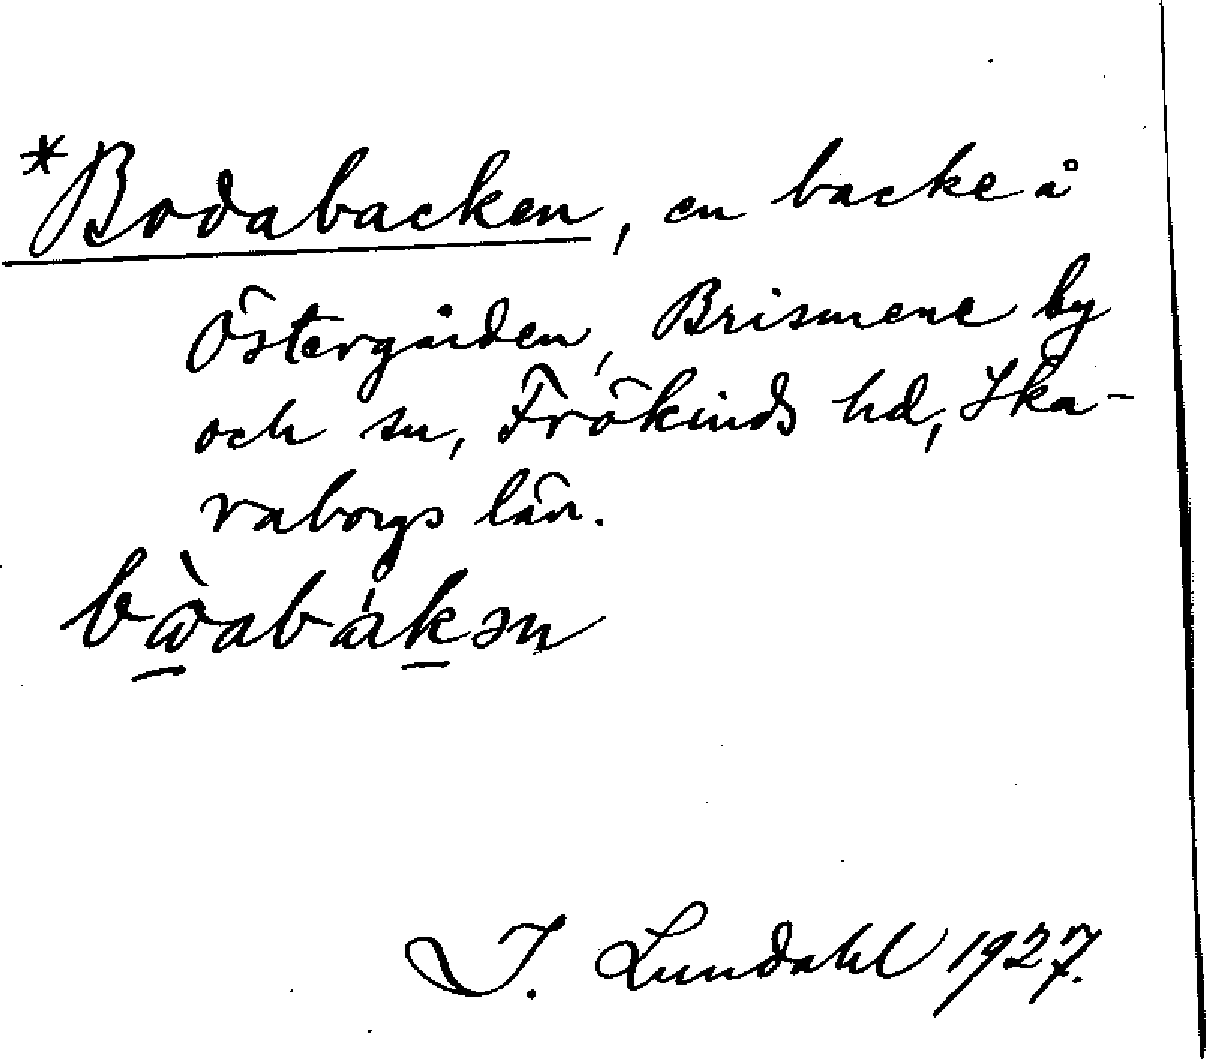 *Bodabacken, en backe å
Östergården, Brismene by
och sn, Frökinds hd, Ska-
raborgs län.
bὼ̲abák̲ən
I. Lundahl 1927.